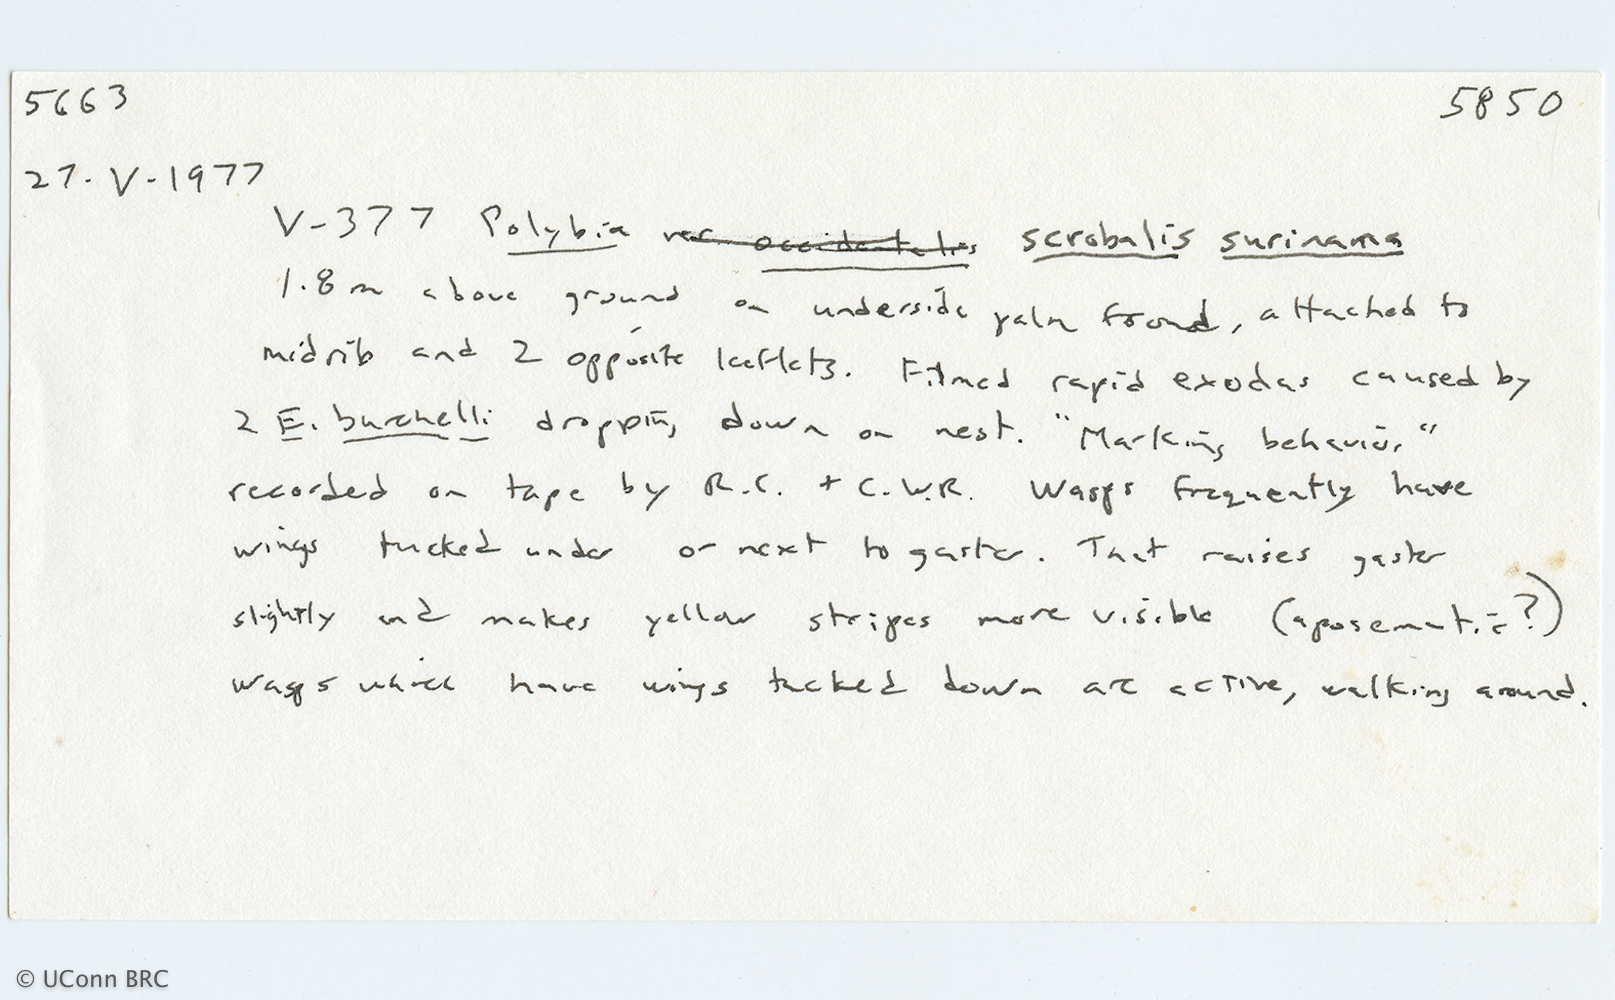 5663 5850
27-V-1977
V-377 Polybia nr. occidentalis scrobalis surinama
1.8 m above ground on underside palm frond, attached to
midrib and 2 opposite leaflets. Filmed rapid exodus caused by
2 E. burchelli dropping down on nest. "Marking behavior"
recorded on tape by R.C. + C.W.R. Wasps frequently have
wings tucked under or next to gaster. That raises gaster
slightly and makes yellow stripes more visible (aposematic?)
Wasps which have wings tucked down are active, walking around.
© UConn BRC